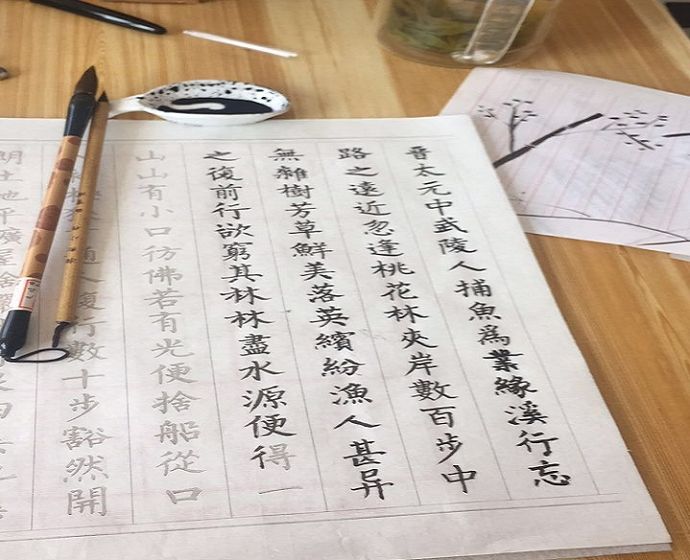 晉太元中武陵人捕魚爲業緣溪行忘
路之遠近忽逢桃花林夾岸數百步中
無雜樹芳草鮮美落英繽紛漁人甚异
之復前行欲窮其林林盡水源便得一
山山有小口彷佛若有光便捨船從口
通人復行數十步豁然開
朗土地平曠屋